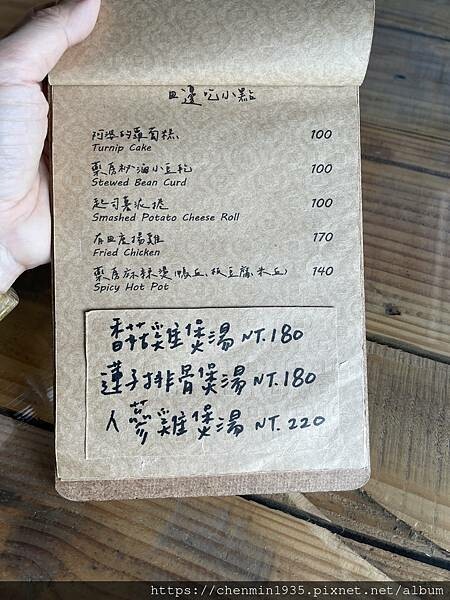 皿邊吃小點
阿婆的蘿蔔糕 100
Turnip Cake
藥房秒滷小豆乾 100
Stewed Bean Curd
起司薯泥捲 100
Smashed Potato Cheese Roll
有皿度揚雞 170
Fried Chicken
藥房麻辣燙(鴨血、板豆腐、米血) 140
Spicy Hot Pot
香菇雞煲湯 NT.180
蓮子排骨煲湯 NT.180
人蔘雞煲湯 NT.220
https://chenmin1935.pixnet.net/album